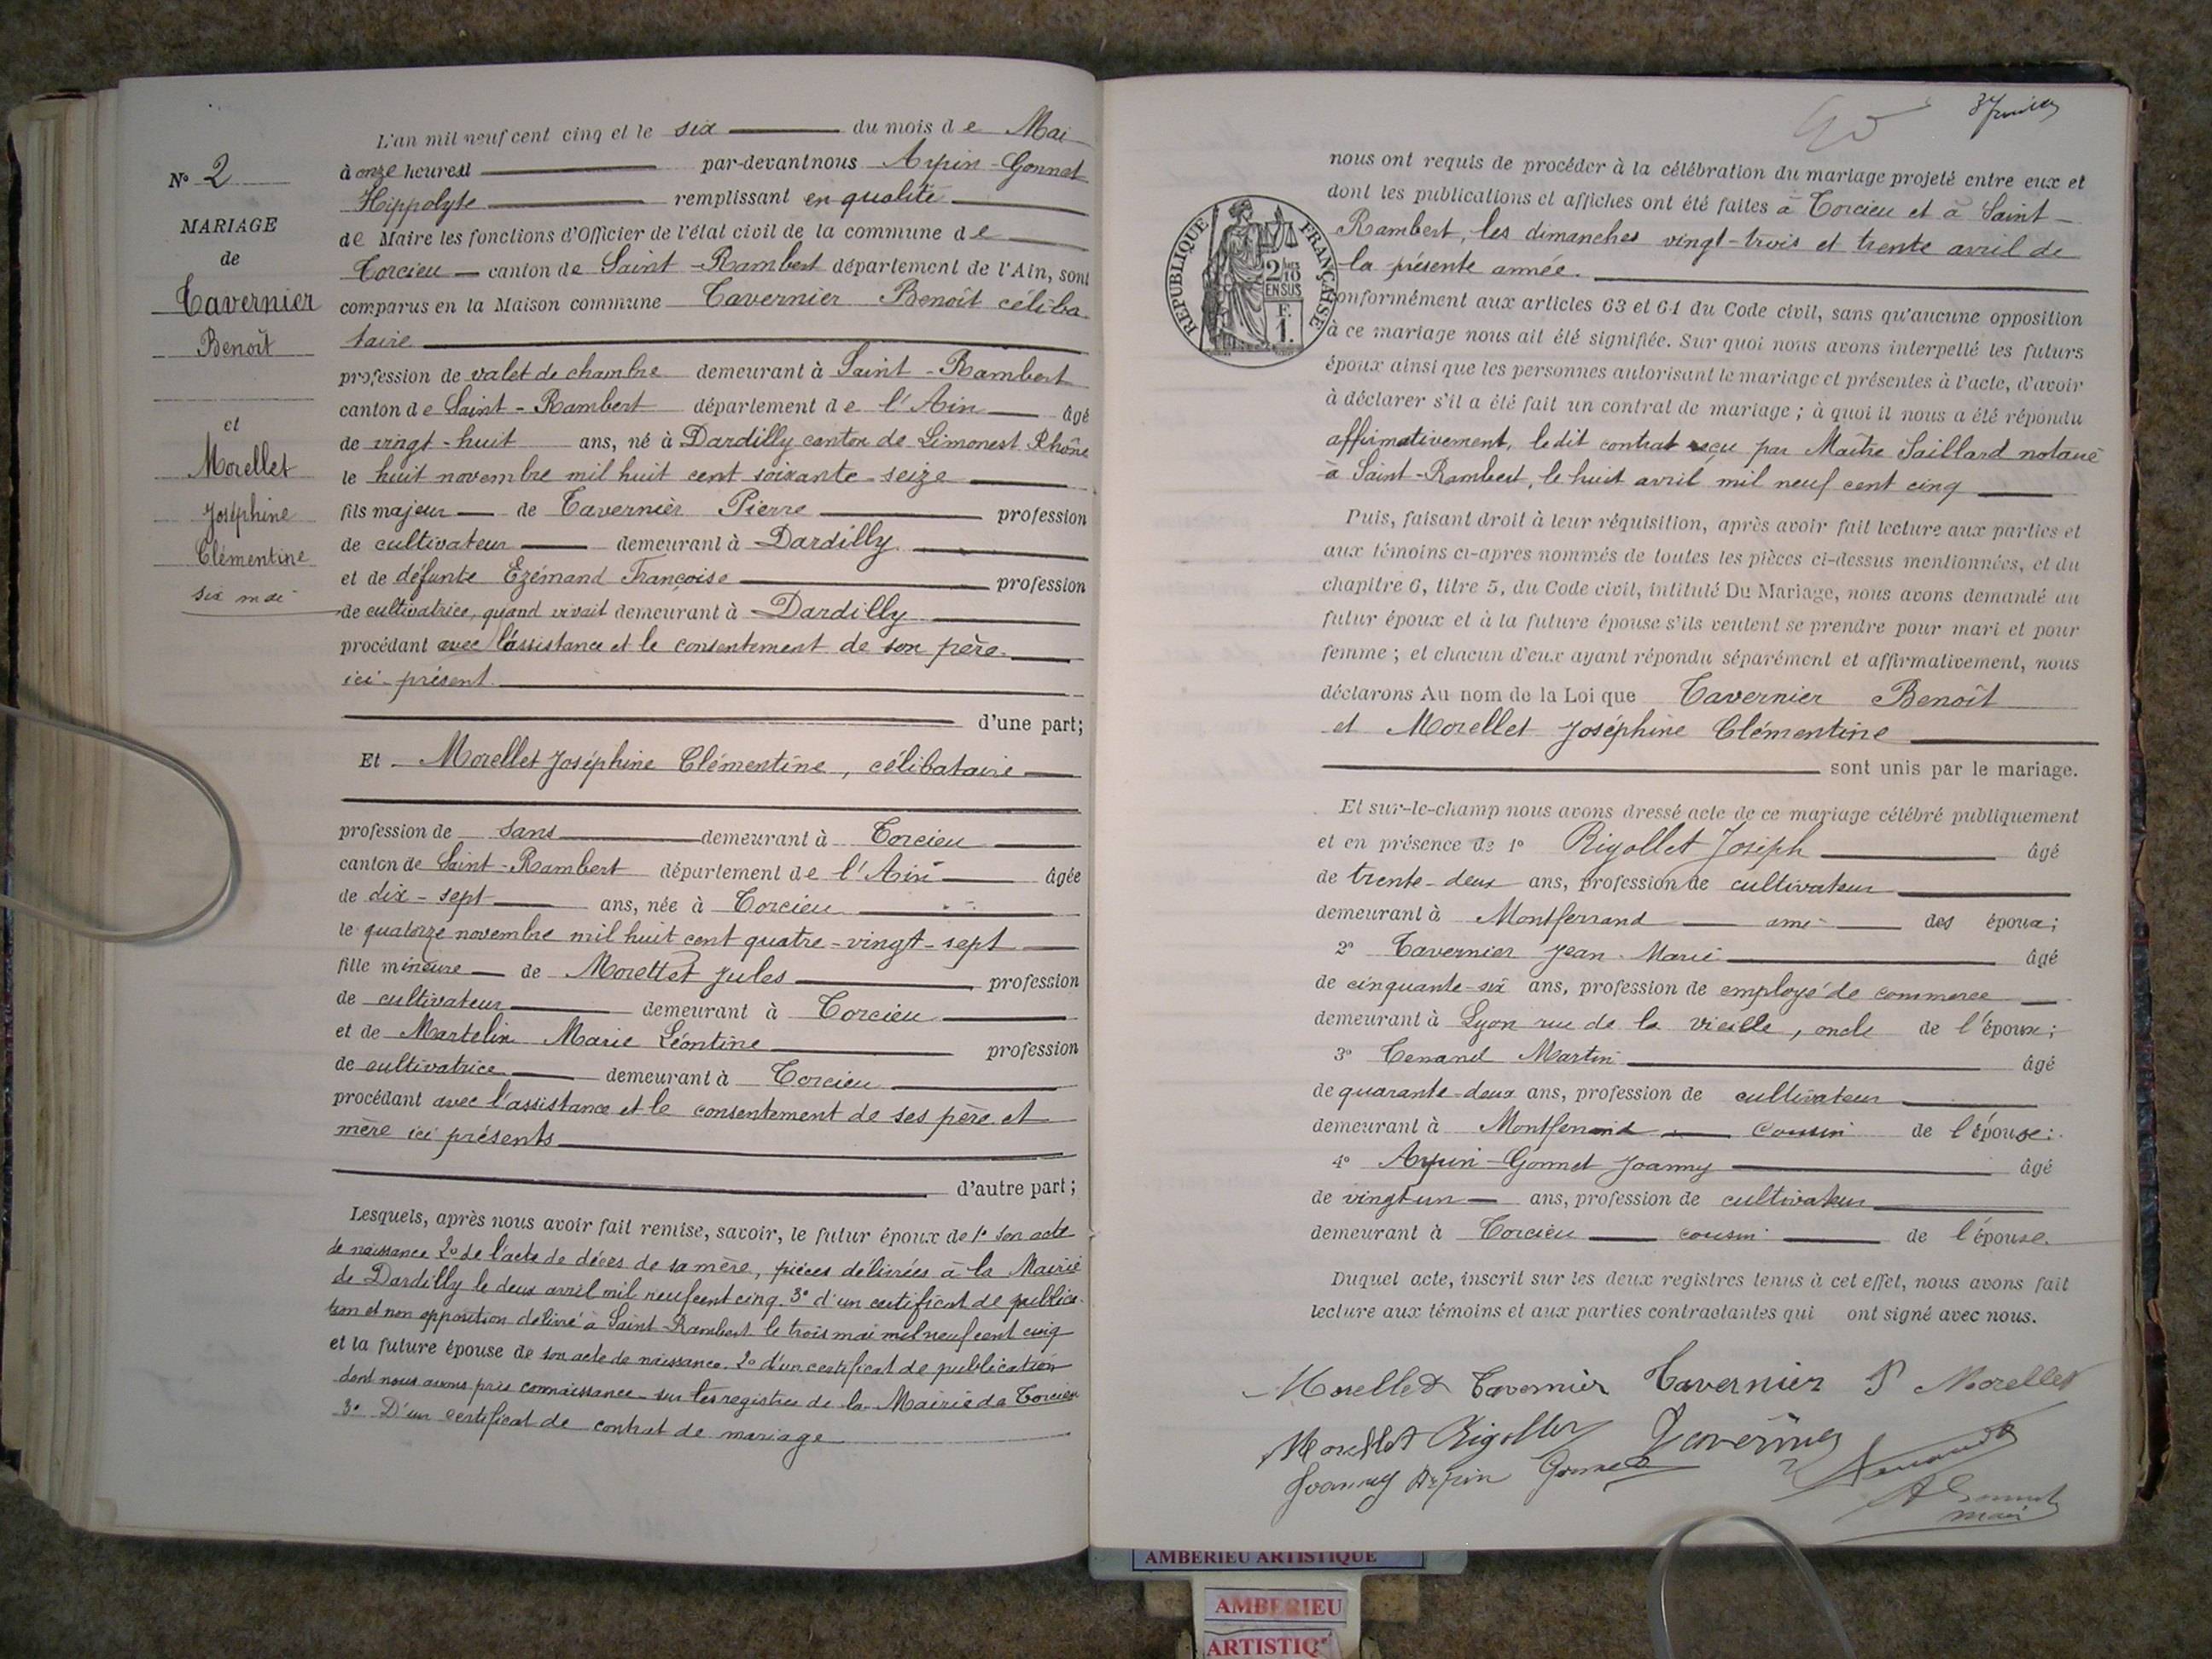 L'an mil neuf cent cinq et le six du mois de Mai
à onze heures par-devant nous Arpin-Gonnet
Hippolyte remplissant en qualité
de Maire les fonctions d'Officier de l'état civil de la commune de
Torcieu canton de Saint-Rambert département de l'Ain, sont
comparus en la Maison commune Tavernier Benoît céliba
taire
profession de valet de chambre demeurant à Saint-Rambert
canton de Saint-Rambert département de l'Ain âgé
de vingt-huit ans, né à Dardilly canton de Limonest Rhône
le huit novembre mil huit cent soixante-seize
fils majeur de Tavernier Pierre profession
de cultivateur demeurant à Dardilly
et de défunte Ezémand Françoise profession
de cultivatrice, quand vivait demeurant à Dardilly
procédant avec l'assistance et le consentement de son père
ici présent
d'une part;
Et Morellet Joséphine Clémentine, célibataire
profession de sans demeurant à Torcieu
canton de Saint-Rambert département de l'Ain âgée
de dix-sept ans, née à Torcieu
le quatorze novembre mil huit cent quatre-vingt-sept
fille mineure de Morellet Jules profession
de cultivateur demeurant à Torcieu
et de Martelin Marie Léontine profession
de cultivatrice demeurant à Torcieu
procédant avec l'assistance et le consentement de ses père et
mère ici présents
d'autre part;
Lesquels, après nous avoir fait remise, savoir, le futur époux de 1° son acte
de naissance 2° de l'acte de décès de sa mère, pièces délivrées à la Mairie
de Dardilly le deux avril mil neuf cent cinq. 3° d'un certificat de publica-
tion et non opposition délivré à Saint-Rambert le trois mai mil neuf cent cinq
et la future épouse de son acte de naissance. 2° d'un certificat de publication
dont nous avons pris connaissance sur les registres de la Mairie de Torcieu
3° D'un certificat de contrat de mariage
N° 2
MARIAGE
de
Tavernier
Benoît
et
Morellet
Joséphine
Clémentine
six mai
nous ont requis de procéder à la célébration du mariage projeté entre eux et
dont les publications et affiches ont été faites à Torcieu et à Saint-
Rambert, les dimanches vingt-trois et trente avril de
la présente année.
conformément aux articles 63 et 64 du Code civil, sans qu'aucune opposition
à ce mariage nous ait été signifiée. Sur quoi nous avons interpellé les futurs
époux ainsi que les personnes autorisant le mariage et présentes à l'acte, d'avoir
à déclarer s'il a été fait un contrat de mariage; à quoi il nous a été répondu
affirmativement, ledit contrat reçu par Maître Saillard notaire
à Saint-Rambert, le huit avril mil neuf cent cinq
Puis, faisant droit à leur réquisition, après avoir fait lecture aux parties et
aux témoins ci-après nommés de toutes les pièces ci-dessus mentionnées, et du
chapitre 6, titre 5, du Code civil, intitulé Du Mariage, nous avons demandé au
futur époux et à la future épouse s'ils veulent se prendre pour mari et pour
femme; et chacun d'eux ayant répondu séparément et affirmativement, nous
déclarons Au nom de la Loi que Tavernier Benoît
et Morellet Joséphine Clémentine
sont unis par le mariage.
Et sur-le-champ nous avons dressé acte de ce mariage célébré publiquement
et en présence de 1° Rigollet Joseph âgé
de trente-deux ans, profession de cultivateur
demeurant à Montferrand ami des époux;
2° Tavernier Jean-Marie âgé
de cinquante-six ans, profession de employé de commerce
demeurant à Lyon rue de la vieille, oncle de l'époux;
3° Tenand Martin âgé
de quarante-deux ans, profession de cultivateur
demeurant à Montferrand cousin de l'épouse;
4° Arpin-Gonnet Joanny âgé
de vingt un ans, profession de cultivateur
demeurant à Torcieu cousin de l'épouse.
Duquel acte, inscrit sur les deux registres tenus à cet effet, nous avons fait
lecture aux témoins et aux parties contractantes qui ont signé avec nous.
Morellet Tavernier Tavernier P Morellet
Morellet Rigollet Tavernier
Joanny Arpin Gonnet
maire
RÉPUBLIQUE FRANÇAISE
2/10
EN SUS
F.
1.
AMBERIEU ARTISTIQUE
AMBERIEU
ARTISTIQ